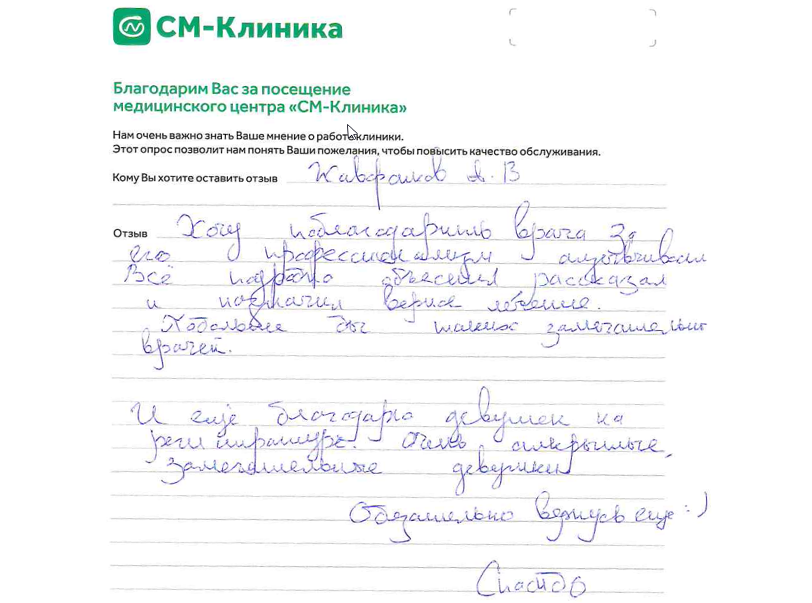 СМ-Клиника
Благодарим Вас за посещение
медицинского центра «СМ-Клиника»
Нам очень важно знать Ваше мнение о работе клиники.
Этот опрос позволит нам понять Ваши пожелания, чтобы повысить качество обслуживания.
Кому Вы хотите оставить отзыв А. В
Отзыв Хочу поблагодарить врача за
его профессионализм
Всё подробно объяснил рассказал
и назначил верное лечение.
Побольше бы таких замечательных
врачей.
И ещё благодарю девушек на
регистратуре. Очень открытые,
замечательные девушки
Обязательно вернусь еще :)
Спасибо